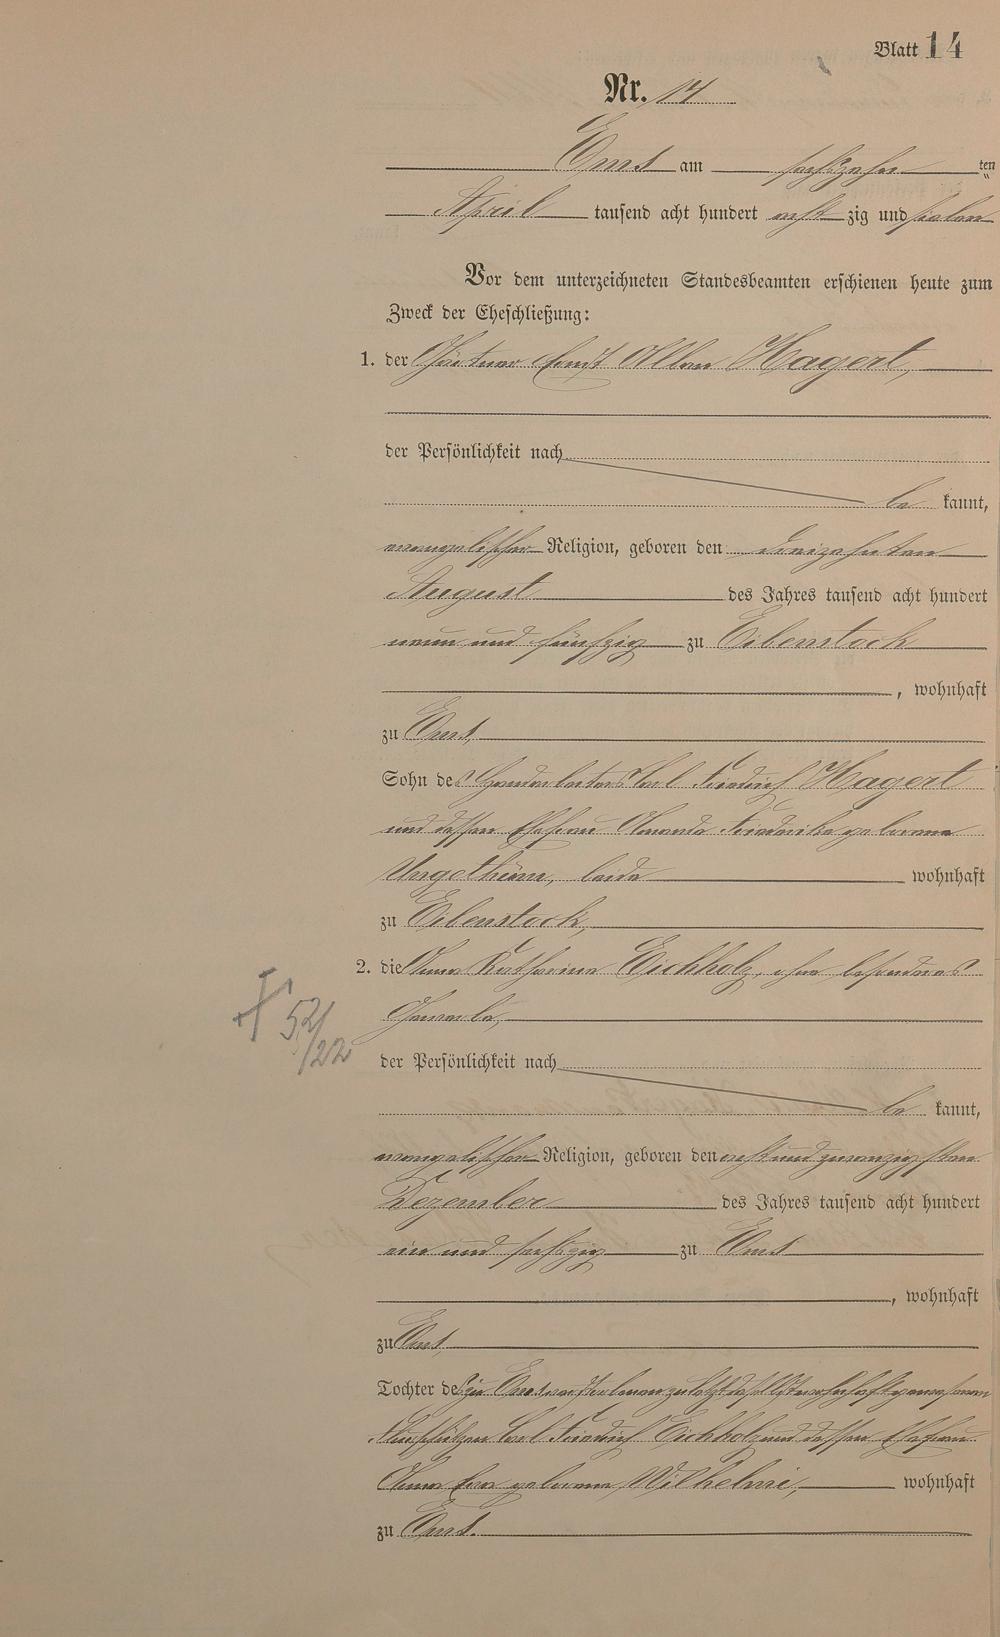 Blatt 14
Nr. 14
Ems am sechszehn ten
April tausend acht hundert acht zig und sieben
Vor dem unterzeichneten Standesbeamten erschienen heute zum
Zweck der Eheschließung:
1. der Gärtner Ernst Alban Hagert,
der Persönlichkeit nach
be kannt,
evangelischer Religion, geboren den dreizehnten
August des Jahres tausend acht hundert
neun und fünfzig zu Eibenstock
, wohnhaft
zu Ems,
Sohn des Handarbeiters Carl Friedrich Hagert
und dessen Ehefrau Amanda Friederike geborene
Ungethüm, beide wohnhaft
zu Eibenstock,
2. die Anna Katharina Eichholz, ohne besonderes
Gewerbe,
+ 52/22
der Persönlichkeit nach
be kannt,
evangelischer Religion, geboren den acht und zwanzigsten
Dezember des Jahres tausend acht hundert
ein und sechszig zu Ems
, wohnhaft
zu Ems,
Tochter des zu Ems verstorbenen zuletzt daselbst wohnhaft gewesenen
Carl Friedrich Eichholz und dessen Ehefrau
Anna Eva geborene Wilhelmi, wohnhaft
zu Ems.